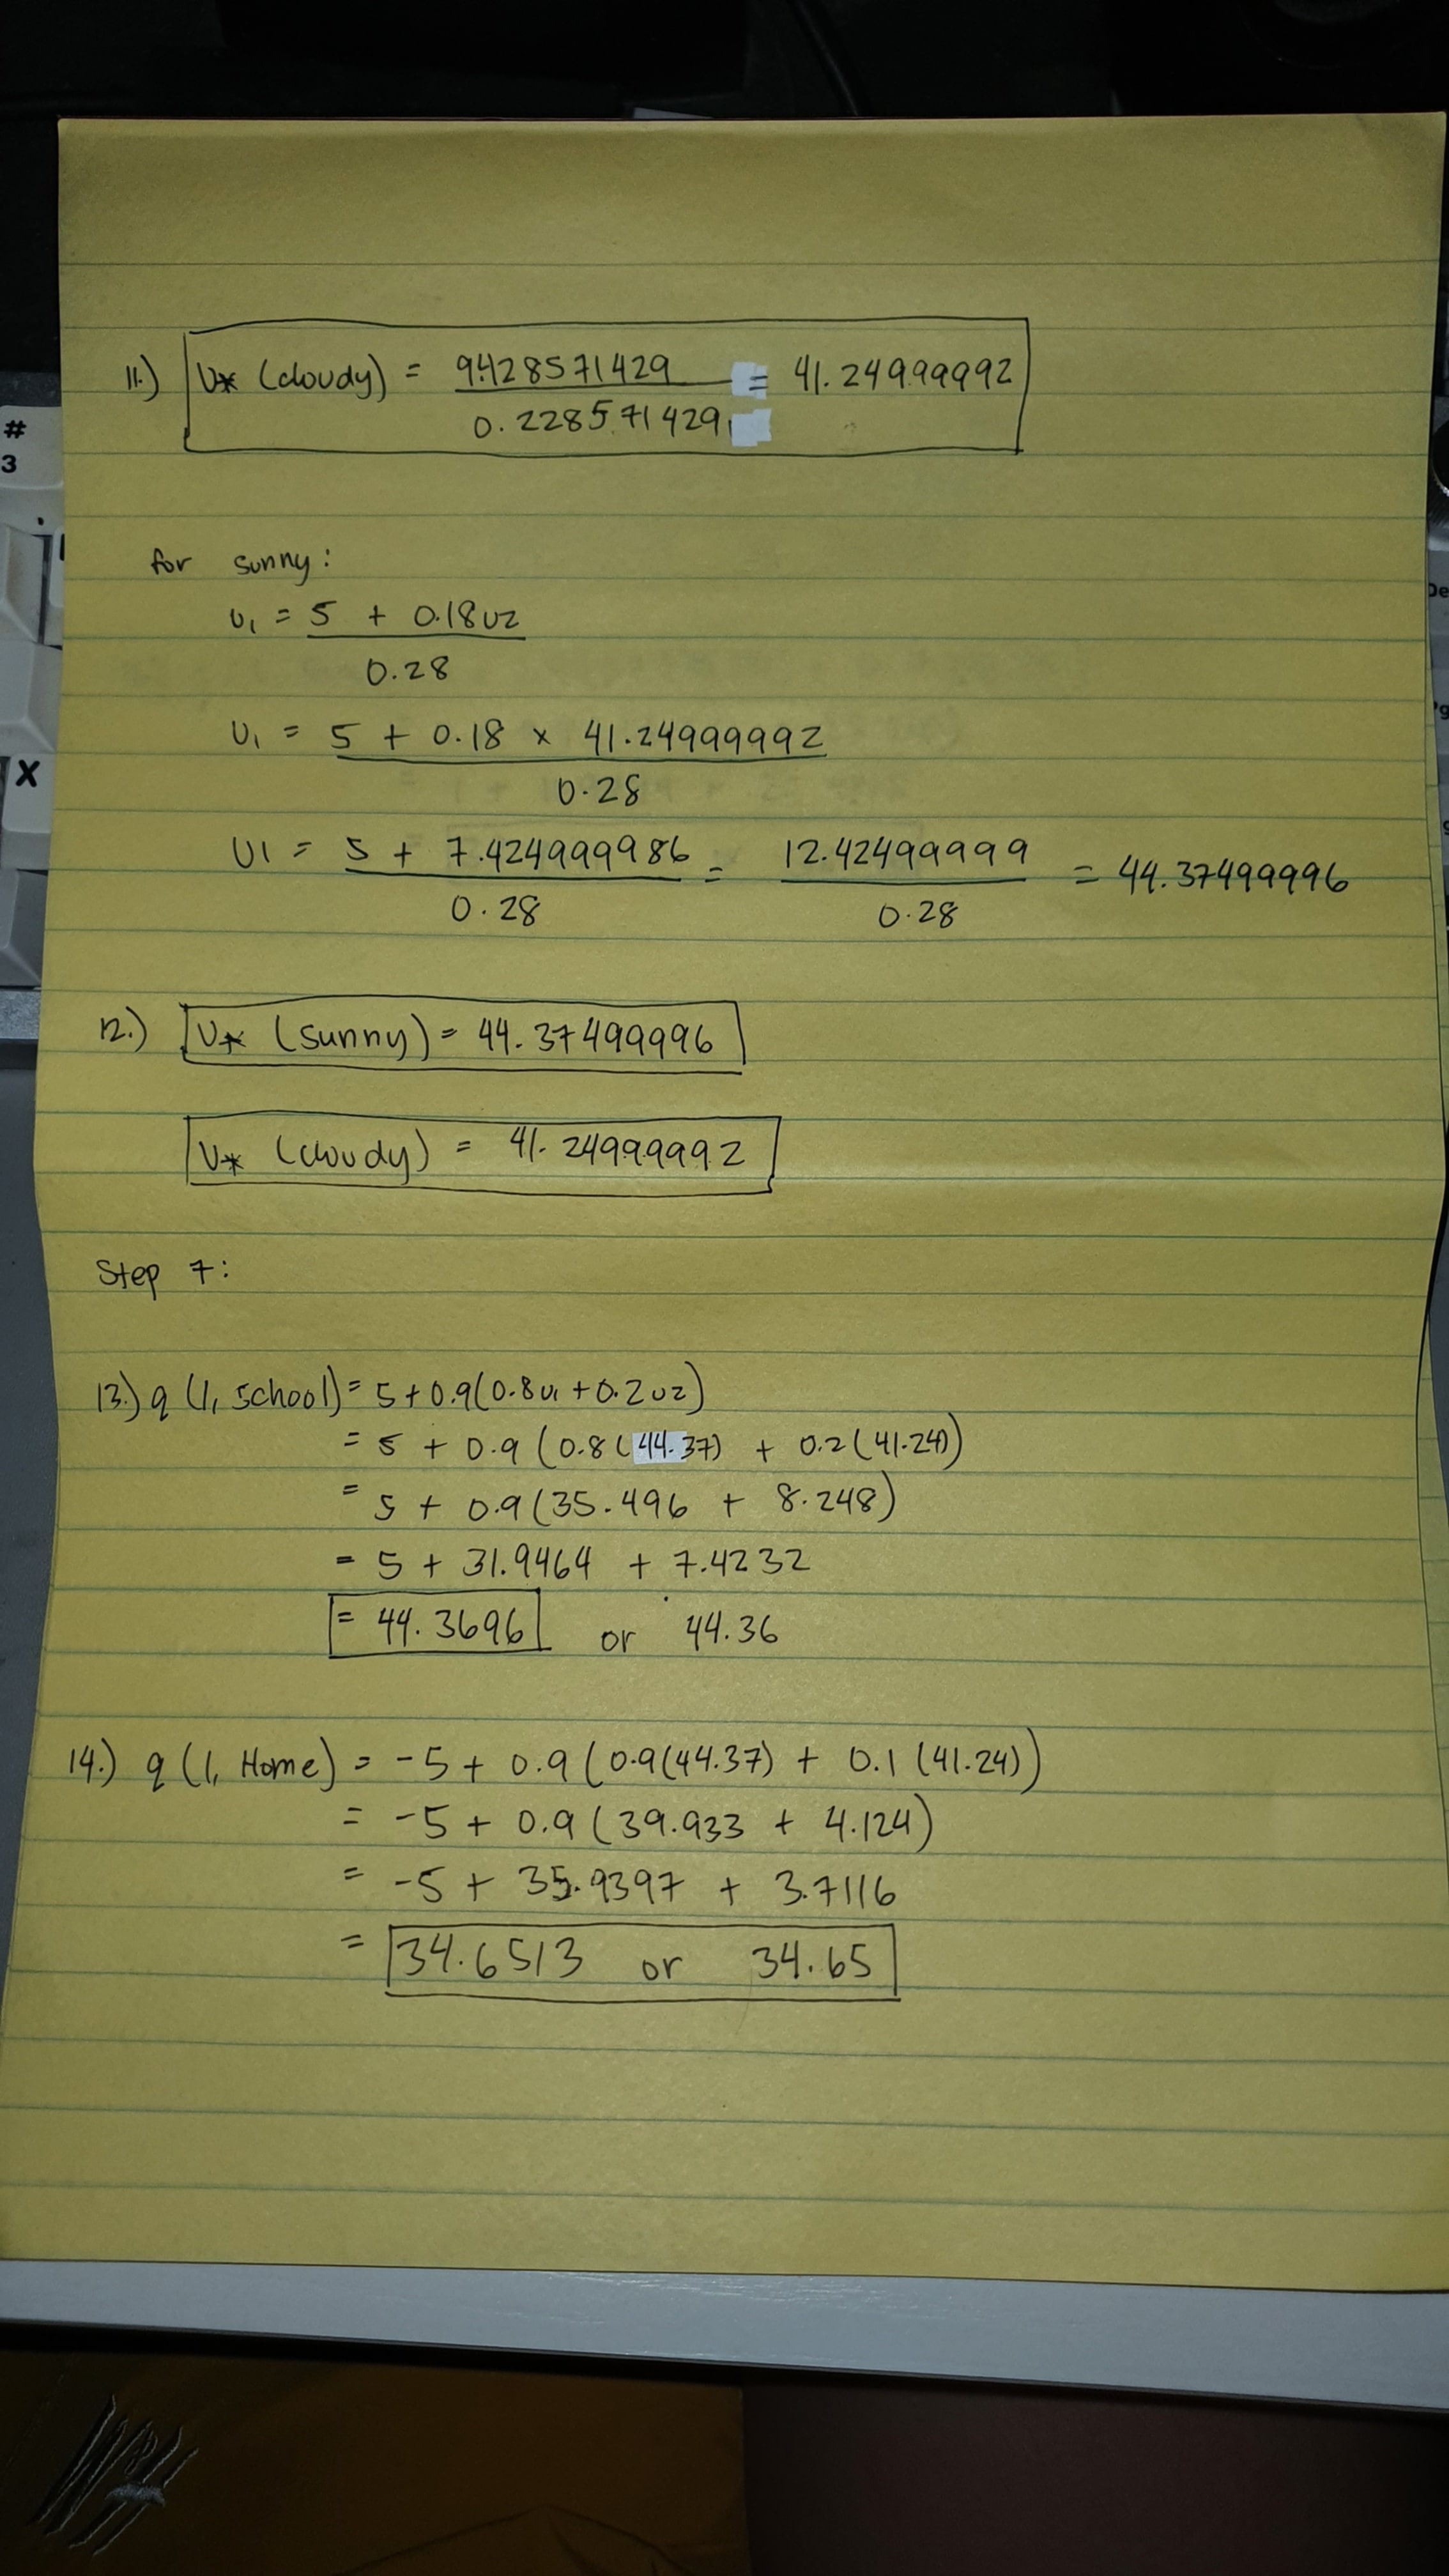 11.) V* (cloudy) = 9.428571429 / 0.228571429 = 41.24999992
for sunny:
U1 = 5 + 0.18U2 / 0.28
U1 = 5 + 0.18 × 41.24999992 / 0.28
U1 = 5 + 7.424999986 / 0.28 = 12.42499999 / 0.28 = 44.37499996
12.) V* (sunny) = 44.37499996
V* (cloudy) = 41.24999992
Step 7:
13.) q (1, School) = 5 + 0.9(0.8U1 + 0.2U2)
= 5 + 0.9 (0.8(44.37) + 0.2(41.24))
= 5 + 0.9(35.496 + 8.248)
= 5 + 31.9464 + 7.4232
= 44.3696 or 44.36
14.) q (1, Home) = -5 + 0.9 (0.9(44.37) + 0.1 (41.24))
= -5 + 0.9 (39.933 + 4.124)
= -5 + 35.9397 + 3.7116
= 34.6513 or 34.65
#
3
X